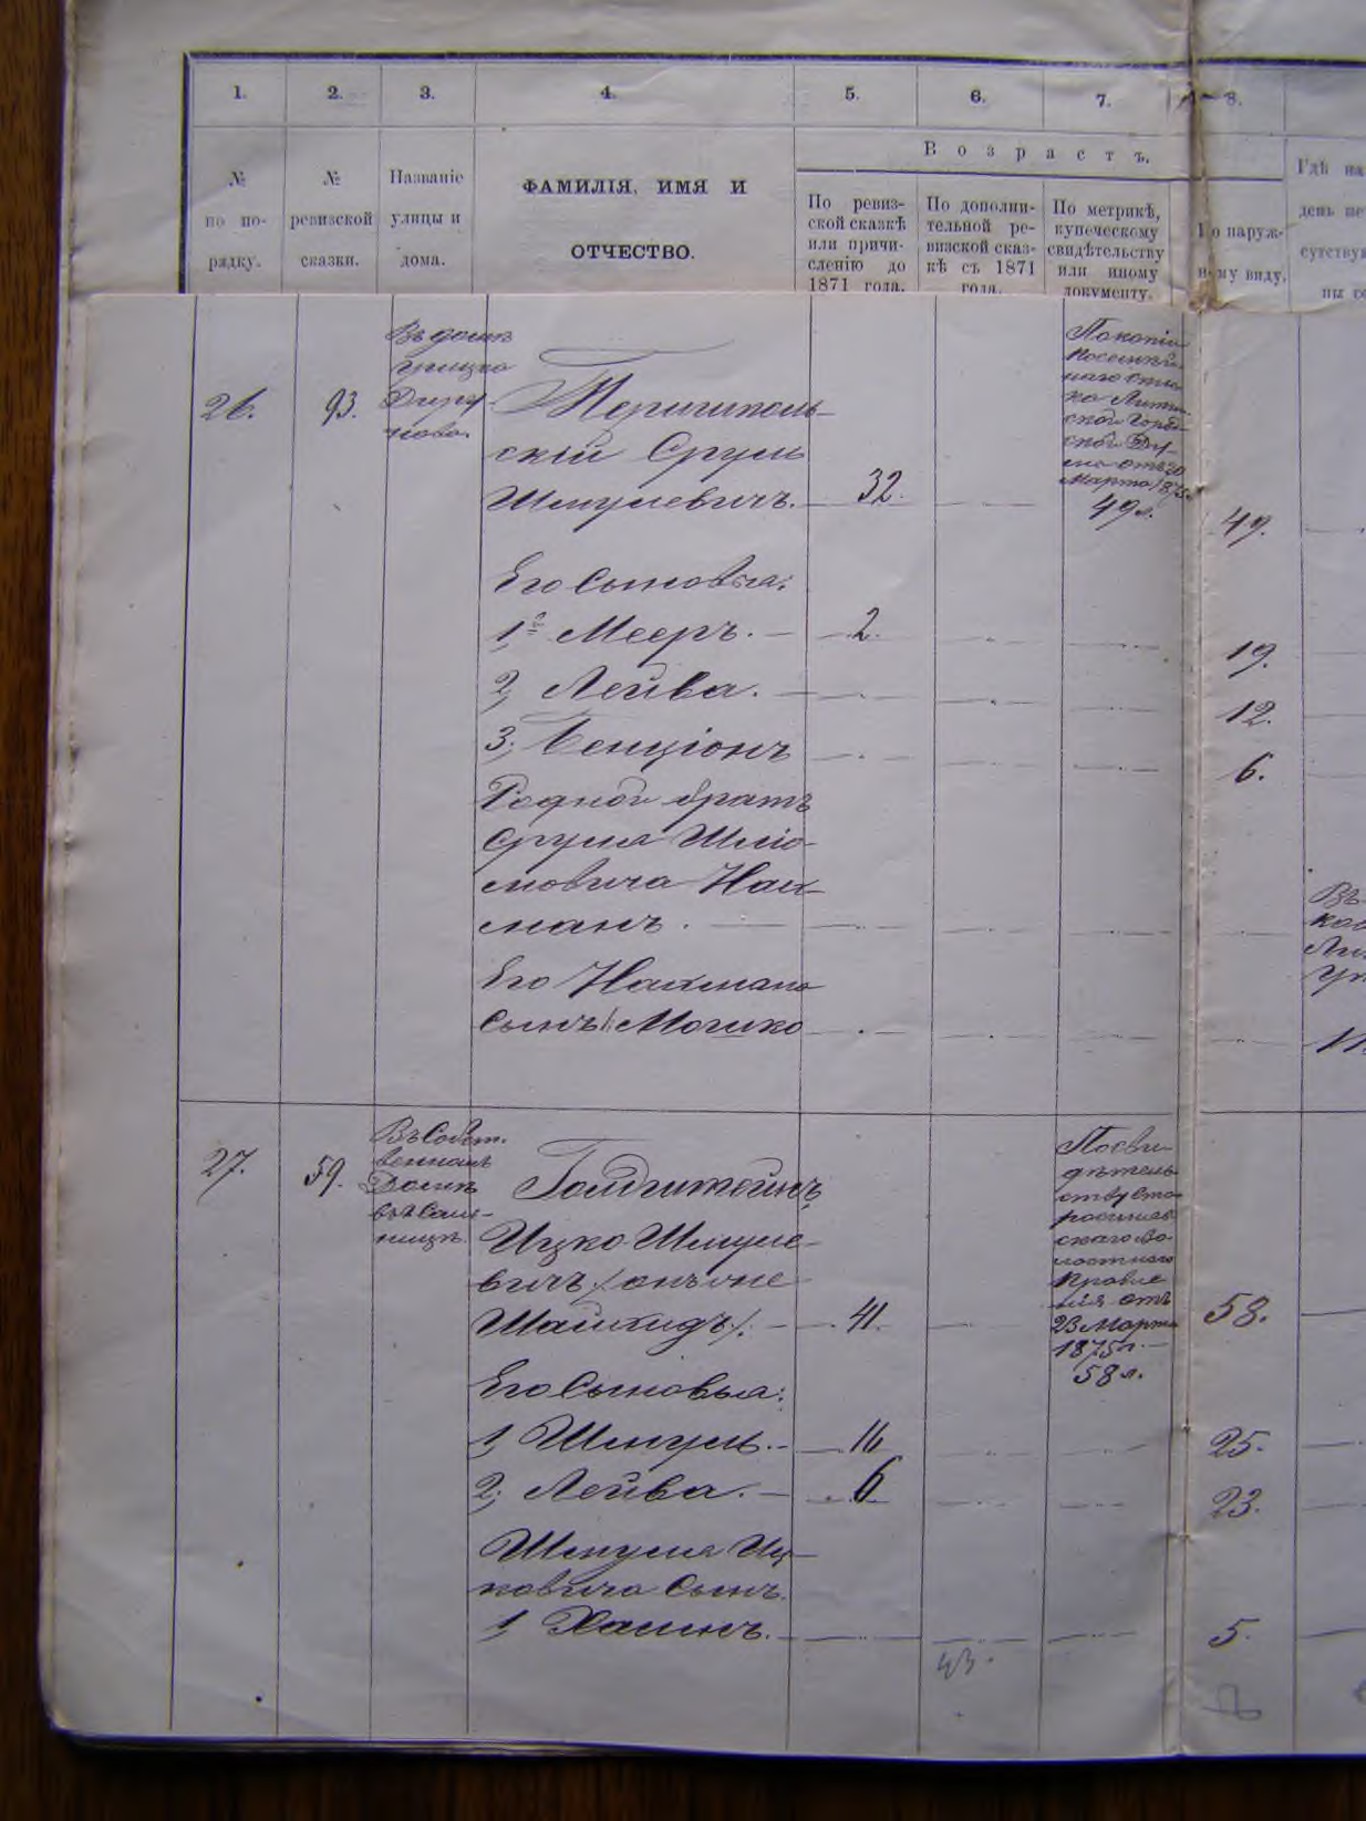 1. 2. 3. 4. 5. 6. 7. 8.
Возрастъ.
№ по порядку.
№ ревизской сказки.
Названіе улицы и дома.
ФАМИЛІЯ, ИМЯ И
ОТЧЕСТВО.
По ревиз-
ской сказкѣ
или причи-
сленію до
1871 года.
По дополни-
тельной ре-
визской сказ-
кѣ съ 1871
года.
По метрикѣ,
купеческому
свидѣтельству
или иному
документу.
По наруж-
ному виду.
Гдѣ на
день
сутству
26. 93.
Въ домѣ
Грицка
скій Сруль
Шмулевичъ. 32.
По копіи
Посемей-
наго спис-
ка Литин-
ской Город-
ской Ду-
мы отъ 20
Марта 1875
49 л.
49.
Его Сыновья:
1й Мееръ. 2. 19.
2, Лейба. 12.
3, Бенціонъ 6.
Родной братъ
Сруля Шліо-
мовича Нах-
манъ.
Его Нахмана
Сынъ Мошко
27. 59.
Въ Собст-
венномъ
Домѣ
Голдштейнъ
Ицко Шмуле-
вичъ (онъ же
Шайкидъ). 41. 58.
По сви-
дѣтель-
ству Ста-
росиняв-
скаго Во-
лостнаго
Правле-
нія отъ
23 Марта
1875 г.
58 л.
Его Сыновья:
1, Шмуль. 16 25.
2, Лейба. 6 23.
Шмуля Иц-
ковича Сынъ.
1, Хаимъ. 5.
43.